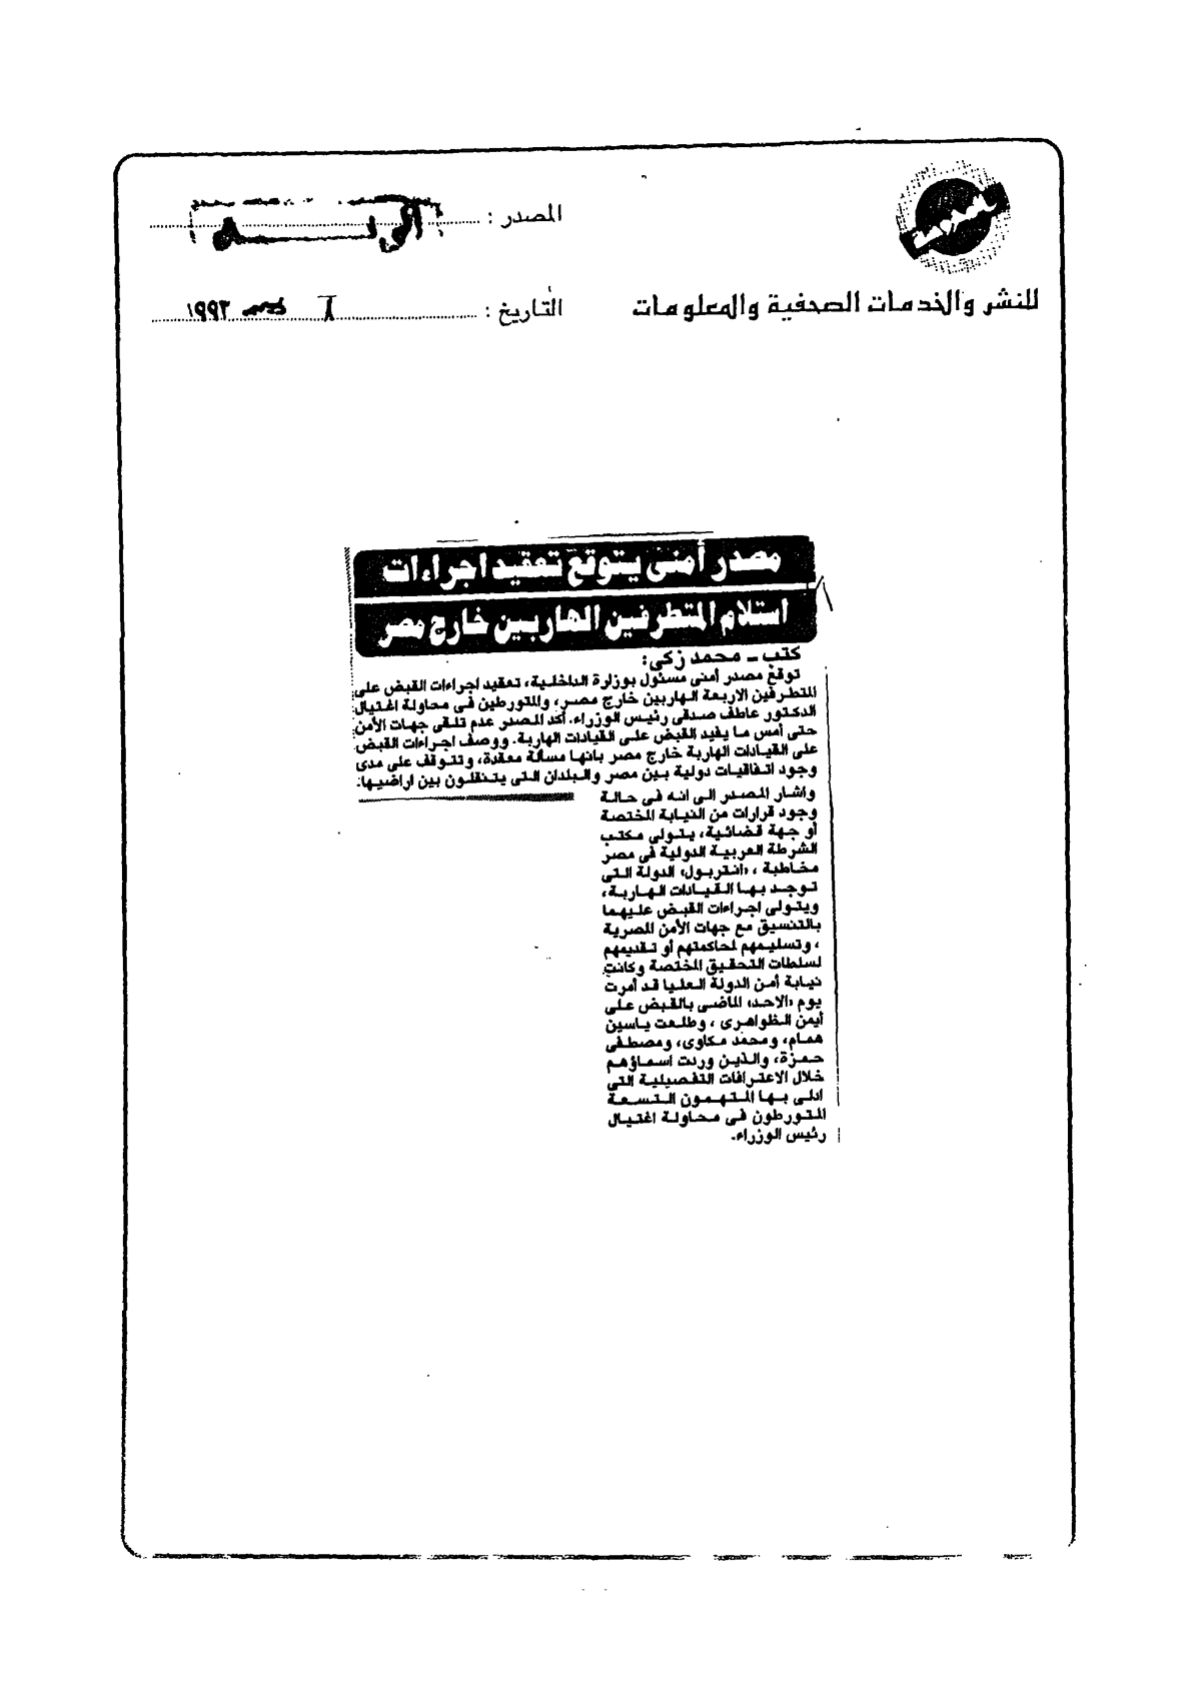 المصدر :
للنشر والخدمات الصحفية والمعلومات
التاريخ : ١٩٩٣
مصدر أمنى يتوقع تعقيد اجراءات
استلام المتطرفين الهاربين خارج مصر
كتب - محمد زكى:
توقع مصدر أمنى مسئول بوزارة الداخلية، تعقيد اجراءات القبض على
المتطرفين الاربعة الهاربين خارج مصر، والمتورطين فى محاولة اغتيال
الدكتور عاطف صدقى رئيس الوزراء. أكد المصدر عدم تلقى جهات الأمن
حتى أمس ما يفيد القبض على القيادات الهاربة. ووصف اجراءات القبض
على القيادات الهاربة خارج مصر بانها مسألة معقدة، وتتوقف على مدى
وجود اتفاقيات دولية بين مصر والبلدان التى يتنقلون بين اراضيها.
واشار المصدر الى انه فى حالة
وجود قرارات من النيابة المختصة
أو جهة قضائية، يتولى مكتب
الشرطة العربية الدولية فى مصر
مخاطبة ، «انتربول» الدولة التى
توجد بها القيادات الهاربة،
ويتولى اجراءات القبض عليهما
بالتنسيق مع جهات الأمن المصرية
، وتسليمهم لمحاكمتهم أو تقديمهم
لسلطات التحقيق المختصة وكانت
نيابة أمن الدولة العليا قد أمرت
يوم «الاحد» الماضى بالقبض على
أيمن الظواهرى ، وطلعت ياسين
همام، ومحمد مكاوى، ومصطفى
حمزة، والذين وردت اسماؤهم
خلال الاعترافات التفصيلية التى
ادلى بها المتهمون التسعة
المتورطون فى محاولة اغتيال
رئيس الوزراء.